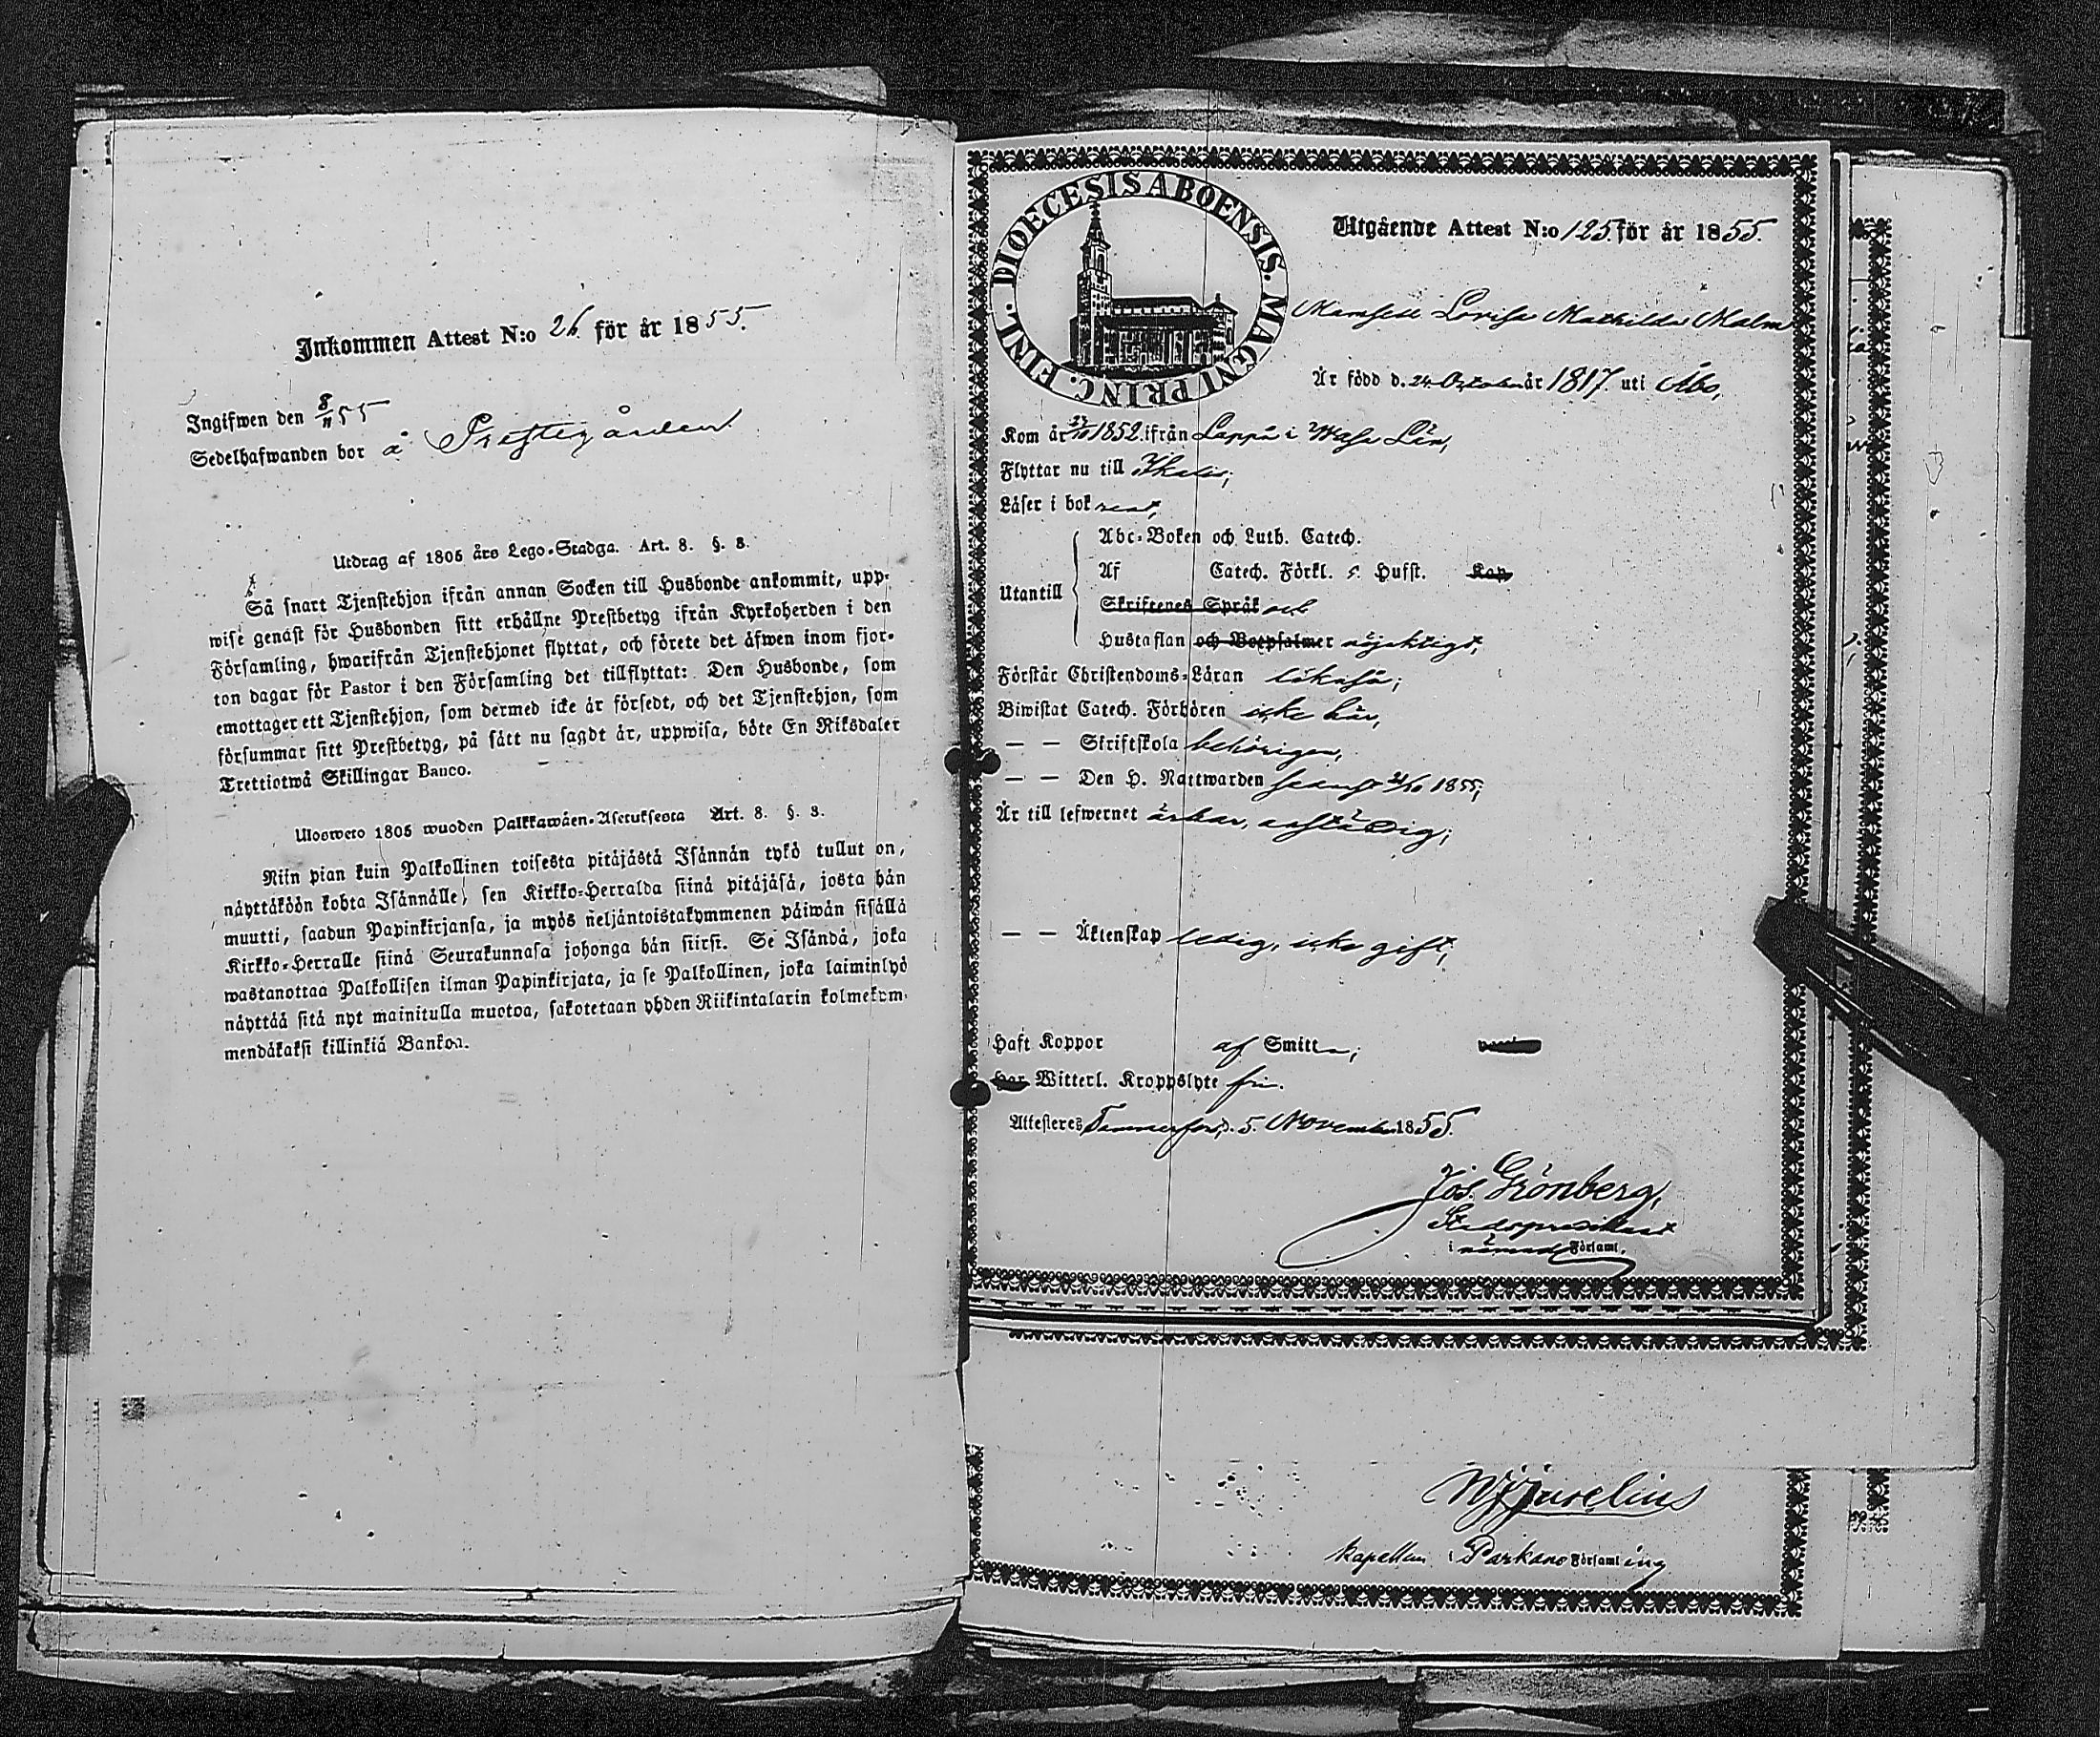 Inkommen Attest N:o 26. för år 1855.
Ingifwen den 8/11 55
Sedelhafwanden bor å Prestegården.
Utdrag af 1805 års Lego-Stadga. Art. 8. §. 8.
Så snart Tjenstehjon ifrån annan Socken till Husbonde ankommit, upp-
wise genast för Husbonden sitt erhållne Prestbetyg ifrån Kyrkoherden i den
Församling, hwarifrån Tjenstehjonet flyttat, och förete det äfwen inom fjor-
ton dagar för Pastor i den Församling det tillflyttat: Den Husbonde, som
emottager ett Tjenstehjon, som dermed icke är försedt, och det Tjenstehjon, som
försummar sitt Prestbetyg, på sätt nu sagdt är, uppwisa, böte En Riksdaler
Trettiotwå Skillingar Banco.
Ulosweto 1805 wuoden Palkkawäen-Asetuksesta Art. 8. §. 8.
Niin pian kuin Palkollinen toisesta pitäjästä Isännän tykö tullut on,
näyttäköön kohta Isännälle, sen Kirkko-Herralda siinä pitäjäsä, josta hän
muutti, saadun Papinkirjansa, ja myös neljäntoistakymmenen päiwän sisällä
Kirkko-Herralle siinä Seurakunnasa johonga hän siirsi. Se Isändä, joka
wastanottaa Palkollisen ilman Papinkirjata, ja se Palkollinen, joka laiminlyö
näyttää sitä nyt mainitulla muotoa, sakotetaan yhden Riikintalarin kolmekym-
mendäkaksi killinkiä Bankoa.
DIOECESIS ABOENSIS. MAGNI PRINC. FINL.
Utgående Attest N:o 125. för år 1855.
Mamsell Lovisa Mathilda Malm
Är född d. 24 October år 1817. uti Åbo,
Kom år 27/10 1852. ifrån Lappå i Wasa Län,
Flyttar nu till Ikalis;
Läser i bok rent,
Utantill
Abc-Boken och Luth. Catech.
Af Catech. Förkl. s. Hufst. Kap
Skriftenes Språk och
Hustaflan och Botpsalmer nöjaktigt,
Förstår Christendoms-Läran likaså;
Biwistat Catech. Förhören icke här,
— — Skriftskola behörigen,
— — Den H. Nattwarden senast 21/10 1855;
Är till lefwernet ärbar, anständig;
— — Äktenskap ledig, icke gift,
Haft Koppor af Smitta;
Har Witterl. Kroppslyte fri.
Attesteres Tammerfors, d. 5. November 1855.
Jos. Grönberg,
Stadspredikant
i nämnd Församl.
Kapellan i Parkano Församling